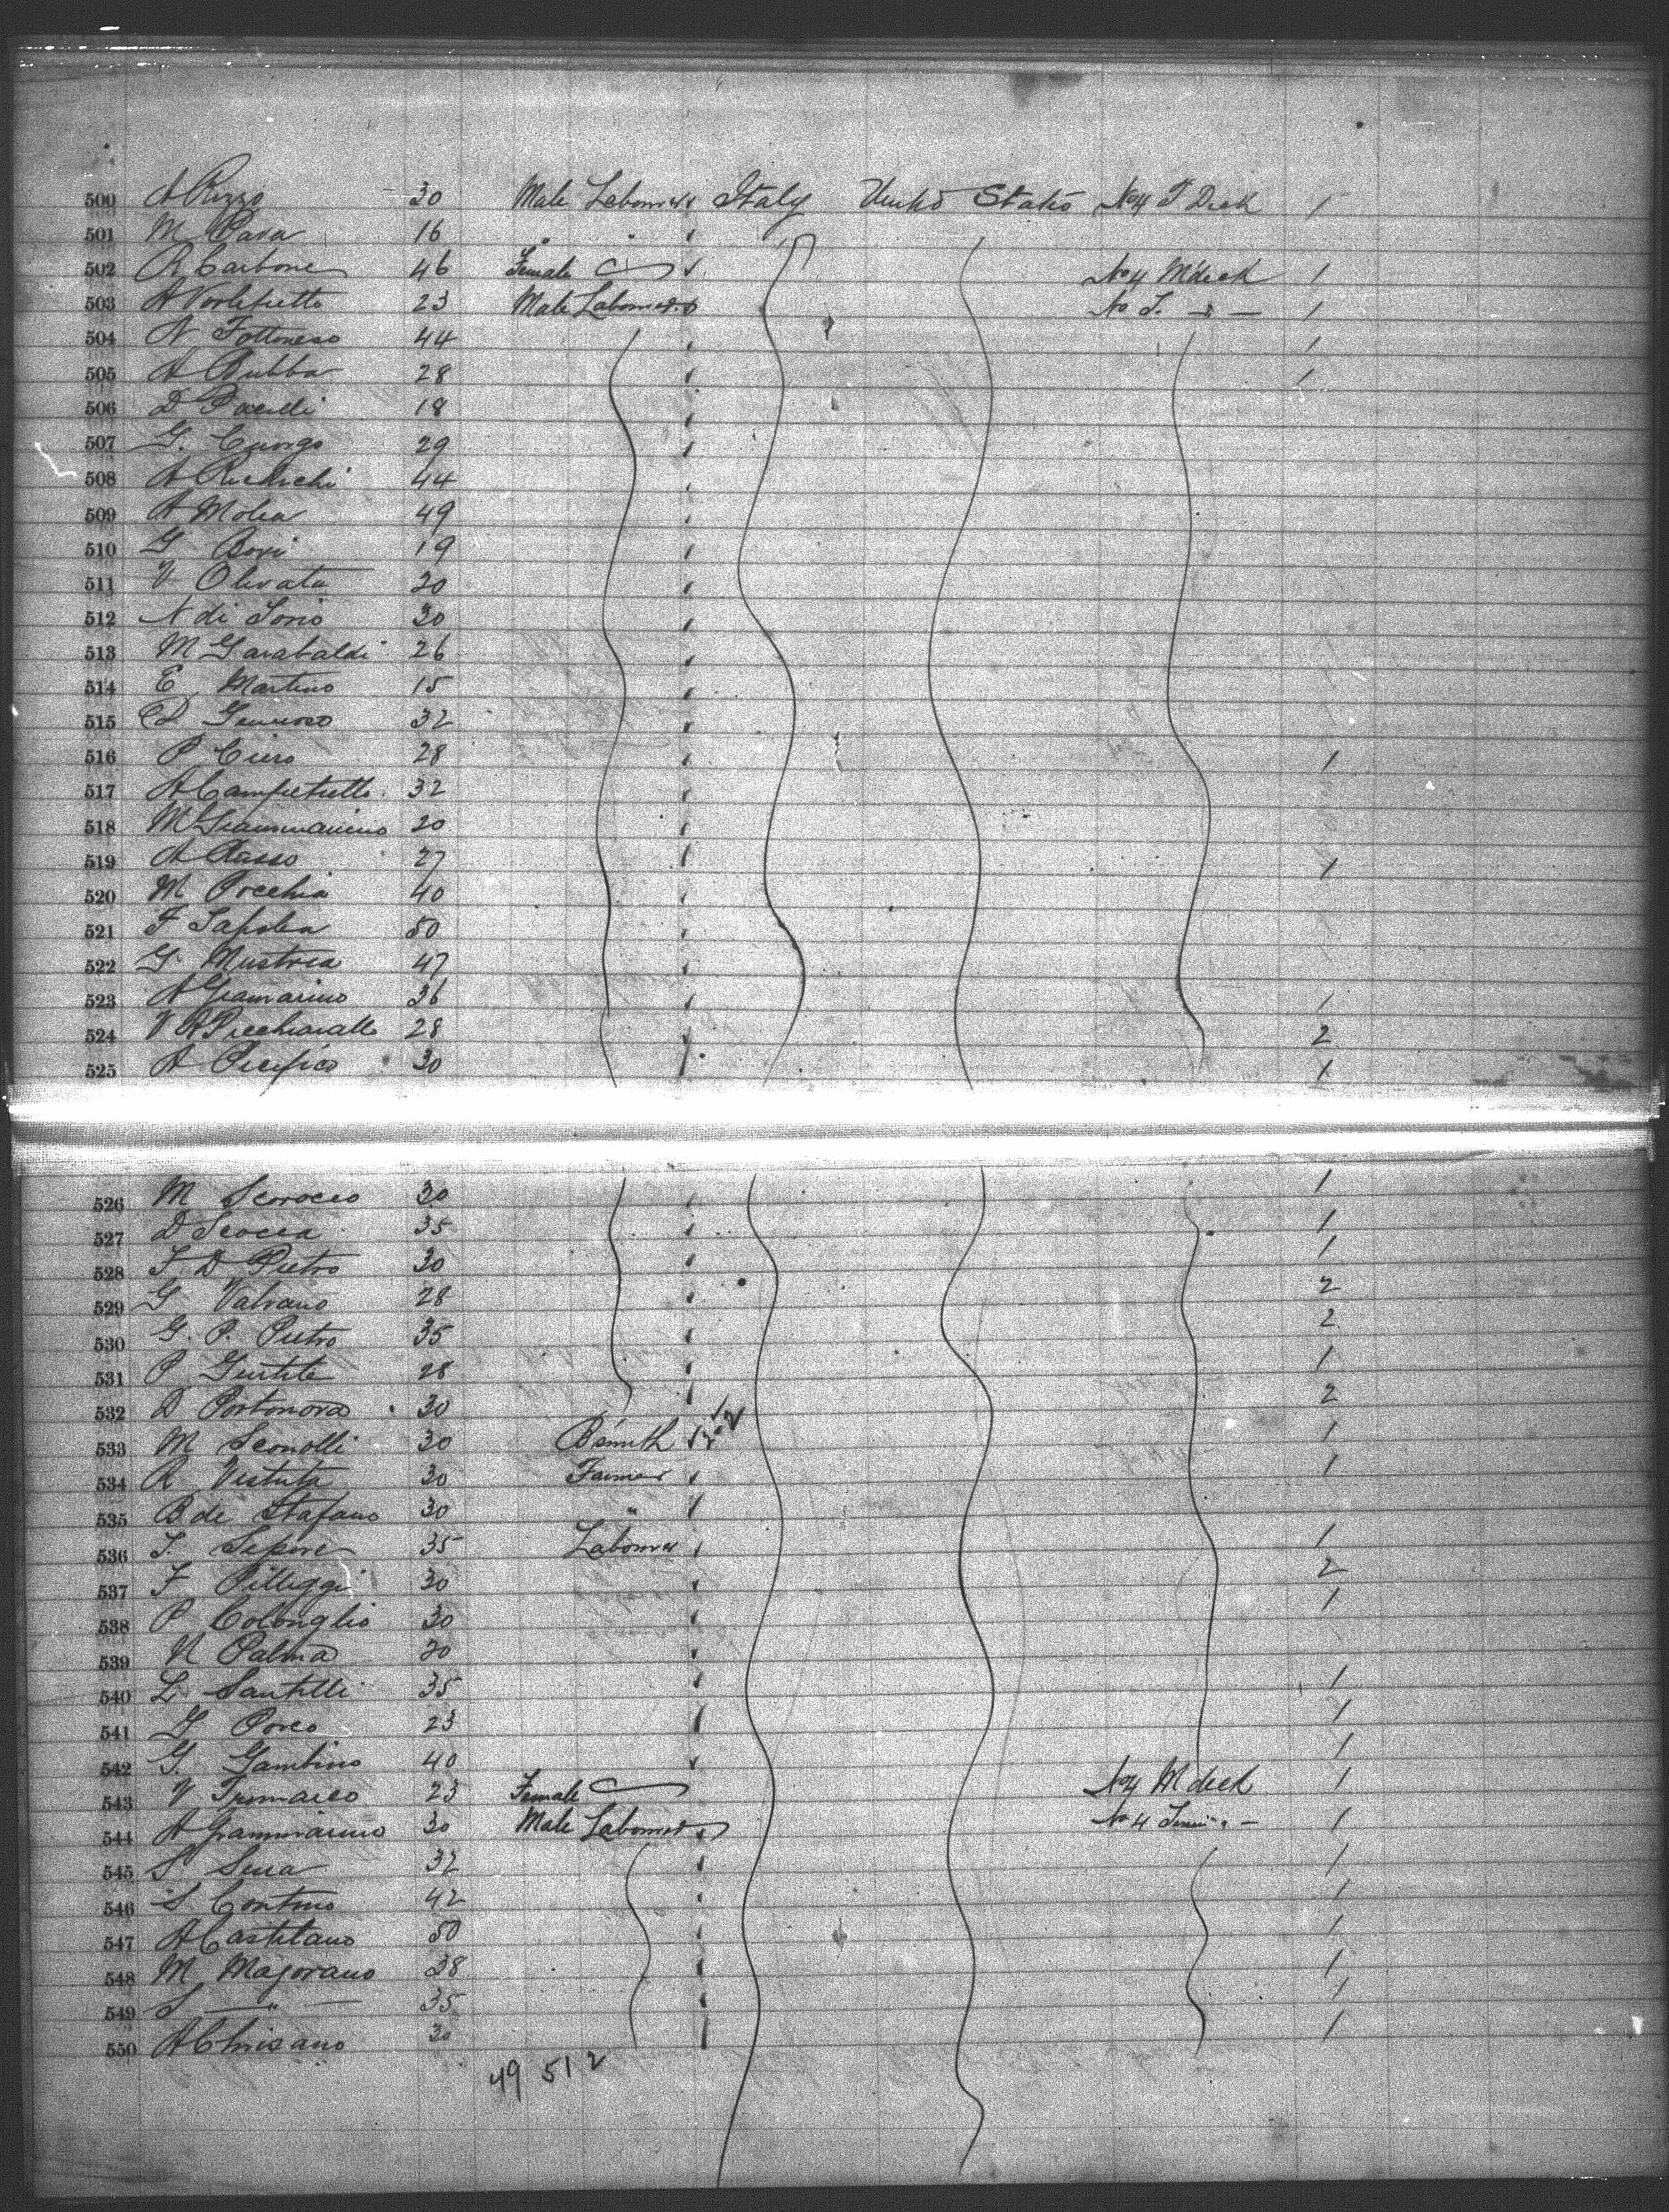 500 A Rizzo 30 Male Labourer Italy United States No 4 T Deck 1
501 M Pava 16 " "
502 R Carbone 46 Female No 4 M deck 1
503 A 23 Male Labourer No T. " — 1
504 N 44 1
505 A Bubba 28 1
506 D Pacelli 18
507 G. Cuorgo 29
508 A 44
509 A Molea 49
510 G Bovi 19
511 V Olivata 20
512 N di Iorio 30
513 M Garabaldi 26
514 E Martino 15
515 32
516 P Ciero 28 1
517 A Campetrello 32
518 M Giammarino 20
519 A Rasso 27 1
520 M Pocchia 40
521 F Sapolea 50
522 G Mustrea 47
523 A Giamarino 36 1
524 V R Picchiarallo 28 2
525 A Pacifico 30 1
526 M Scorocco 30 1
527 D Scocca 35 1
528 F D Pietro 30 1
529 G Valvano 28 2
530 G. P. Pietro 35 2
531 P Gentile 28 1
532 D Portonova 30 2
533 M Sconolli 30 B'smith 1
534 R Vestuta 30 Farmer 1
535 B de Stafano 30 "
536 T. Sepore 35 Labourer 1
537 F Pilleggi 30 2
538 P Colonglio 30 1
539 N Palma 20
540 L Santilli 35 1
541 G Porco 23 1
542 G. Gambino 40 1
543 V 23 Female No 4 M deck 1
544 A Grammarino 30 Male Labourer No 4 " — 1
545 S Serra 32 1
546 S Contino 42 1
547 A Castitano 50 1
548 M Majorano 38 1
549 S — " — 35 1
550 A 30 1
49 51 2